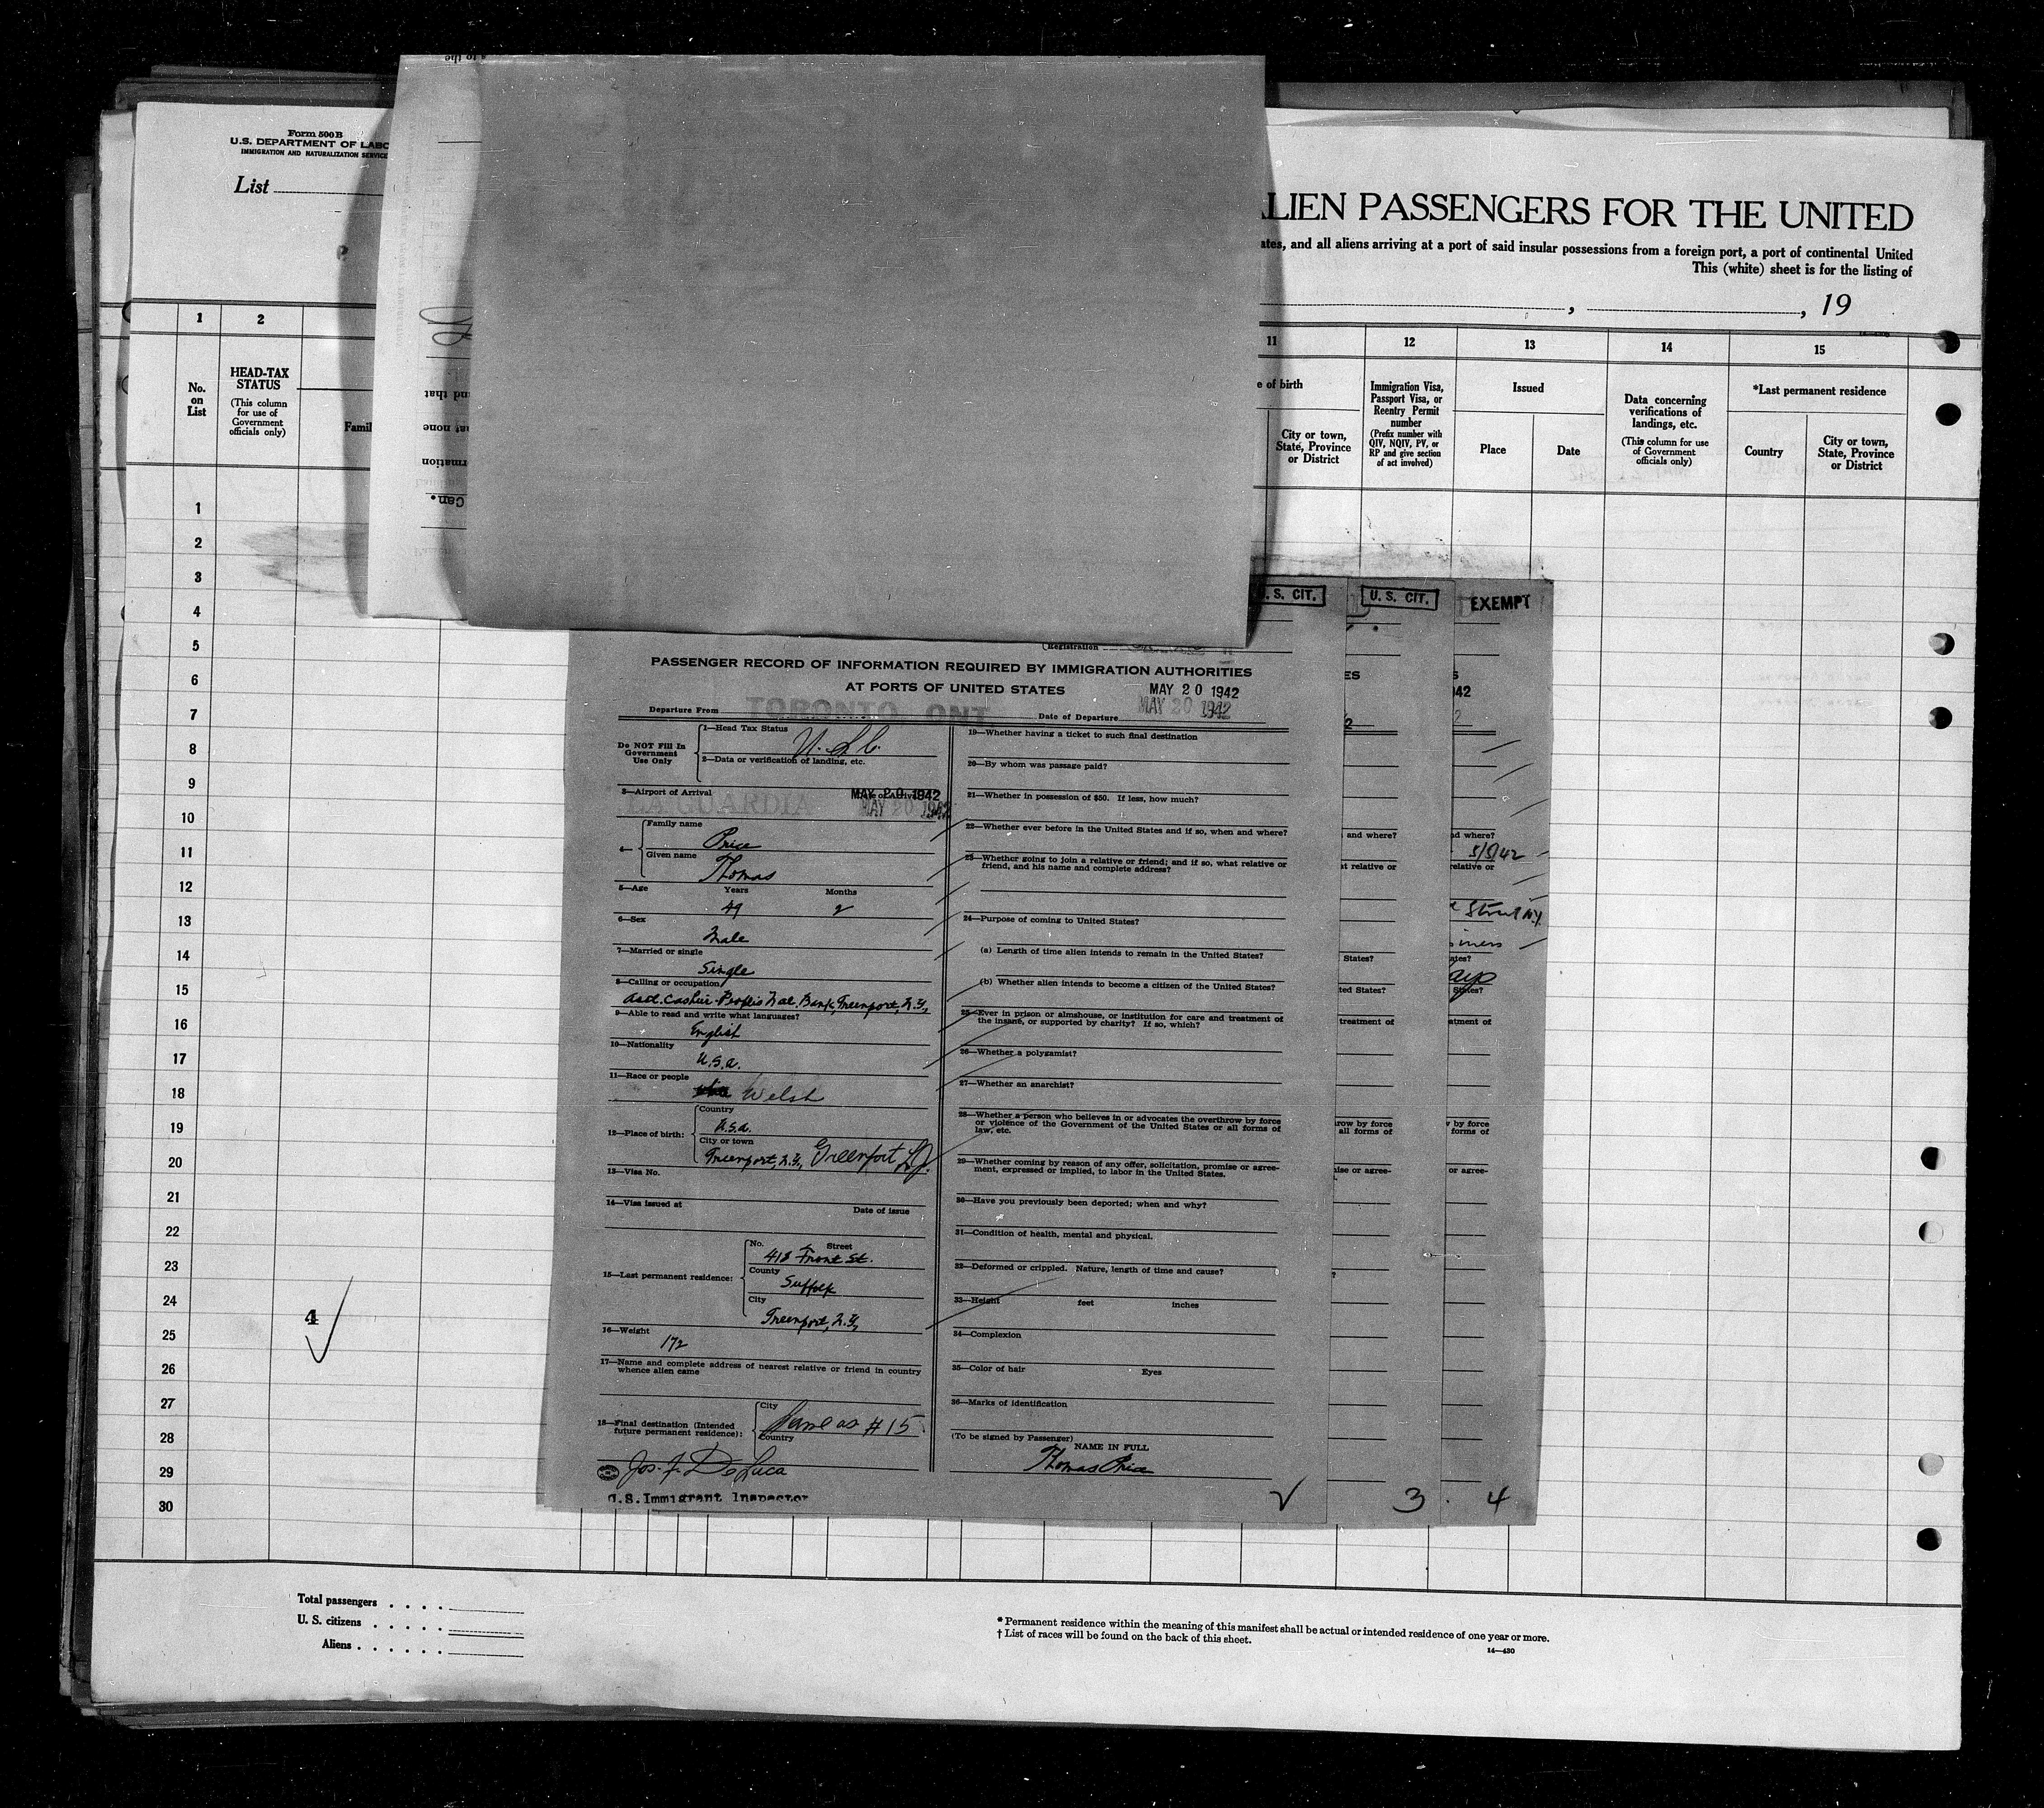 Form 500B
U.S. DEPARTMENT OF LABO
IMMIGRATION AND NATURALIZATION SERVICE
List
ALIEN PASSENGERS FOR THE UNITED
ates, and all aliens arriving at a port of said insular possessions from a foreign port, a port of continental United
This (white) sheet is for the listing of
, , 19
1 2 11 12 13 14 15
No. on List
HEAD-TAX STATUS
(This column for use of Government officials only)
Famil
e of birth
City or town, State, Province or District
Immigration Visa, Passport Visa, or Reentry Permit number
(Prefix number with QIV, NQIV, PV, or RP and give section of act involved)
Issued
Place
Date
Data concerning verifications of landings, etc.
(This column for use of Government officials only)
*Last permanent residence
Country
City or town, State, Province or District
and that
none
rmation
Can.
1
2
3
4
5
6
7
8
9
10
11
12
13
14
15
16
17
18
19
20
21
22
23
24
25
26
27
28
29
30
4
U. S. CIT.
U. S. CIT.
EXEMPT
Registration
PASSENGER RECORD OF INFORMATION REQUIRED BY IMMIGRATION AUTHORITIES
AT PORTS OF UNITED STATES
MAY 20 1942
Departure From TORONTO ONT
Date of Departure MAY 20 1942
Do NOT Fill In Government Use Only
1—Head Tax Status
2—Data or verification of landing, etc.
3—Airport of Arrival LA GUARDIA
MAY 20 1942
MAY 20 1942
4—
Family name Price
Given name Thomas
5—Age Years Months
49 2
6—Sex
Male
7—Married or single
Single
8—Calling or occupation
Asst. Cashier-Peoples Nat. Bank, Greenport, N.Y.
9—Able to read and write what languages?
English
10—Nationality
U.S.A.
11—Race or people
Welsh
12—Place of birth:
Country
U.S.A.
City or town
Greenport, N.Y., Greenport
13—Visa No.
14—Visa issued at Date of issue
15—Last permanent residence:
No. Street
418 Front St.
County
Suffolk
City
Greenport, N.Y.
16—Weight
172
17—Name and complete address of nearest relative or friend in country whence alien came
18—Final destination (Intended future permanent residence):
City
Same as #15
Country
Jos. F. De Luca
U.S.Immigrant Inspector
19—Whether having a ticket to such final destination
20—By whom was passage paid?
21—Whether in possession of $50. If less, how much?
22—Whether ever before in the United States and if so, when and where?
23—Whether going to join a relative or friend; and if so, what relative or friend, and his name and complete address?
24—Purpose of coming to United States?
(a) Length of time alien intends to remain in the United States?
(b) Whether alien intends to become a citizen of the United States?
25—Ever in prison or almshouse, or institution for care and treatment of the insane, or supported by charity? If so, which?
26—Whether a polygamist?
27—Whether an anarchist?
28—Whether a person who believes in or advocates the overthrow by force or violence of the Government of the United States or all forms of law, etc.
29—Whether coming by reason of any offer, solicitation, promise or agreement, expressed or implied, to labor in the United States.
30—Have you previously been deported; when and why?
31—Condition of health, mental and physical.
32—Deformed or crippled. Nature, length of time and cause?
33—Height feet inches
34—Complexion
35—Color of hair Eyes
36—Marks of identification
(To be signed by Passenger)
NAME IN FULL
Thomas Price
3
4
and where?
5/5/42
relative or
Street N.Y.
States?
ted States?
treatment of
row by force
all forms of
ise or agree-
Total passengers . . . .
U. S. citizens . . . . .
Aliens . . . . . .
* Permanent residence within the meaning of this manifest shall be actual or intended residence of one year or more.
† List of races will be found on the back of this sheet.
14—430